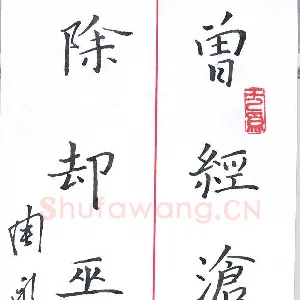 曾經滄
除却巫
Shufawang.CN